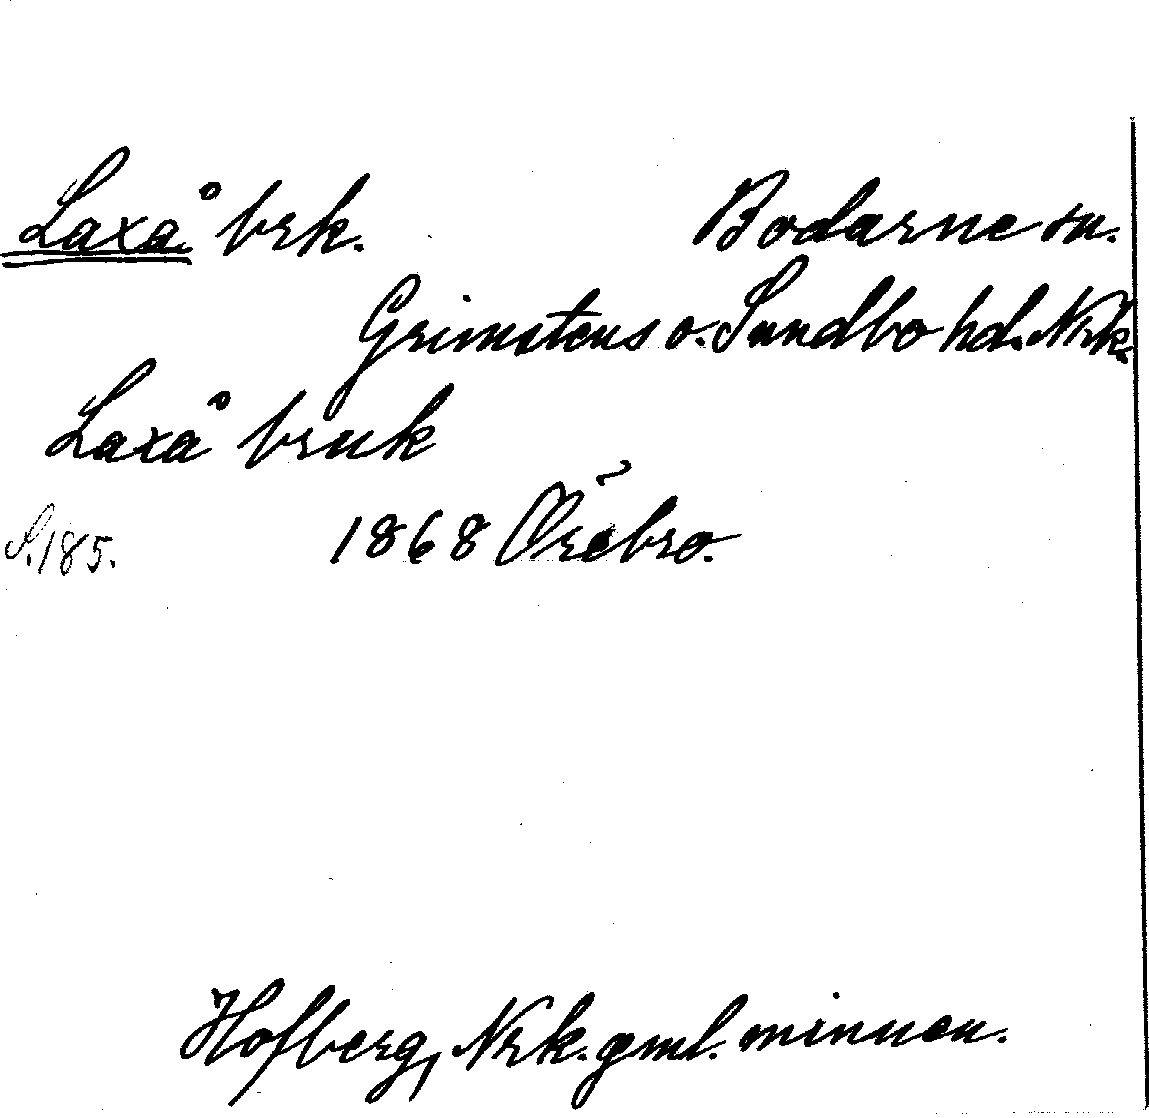 Laxå brk. Bodarne sn.
Grimstens o. Sundbo hd. Nrk.
Laxå bruk
S. 185. 1868 Örebro.
Hofberg, Nrk. gml. minnen.